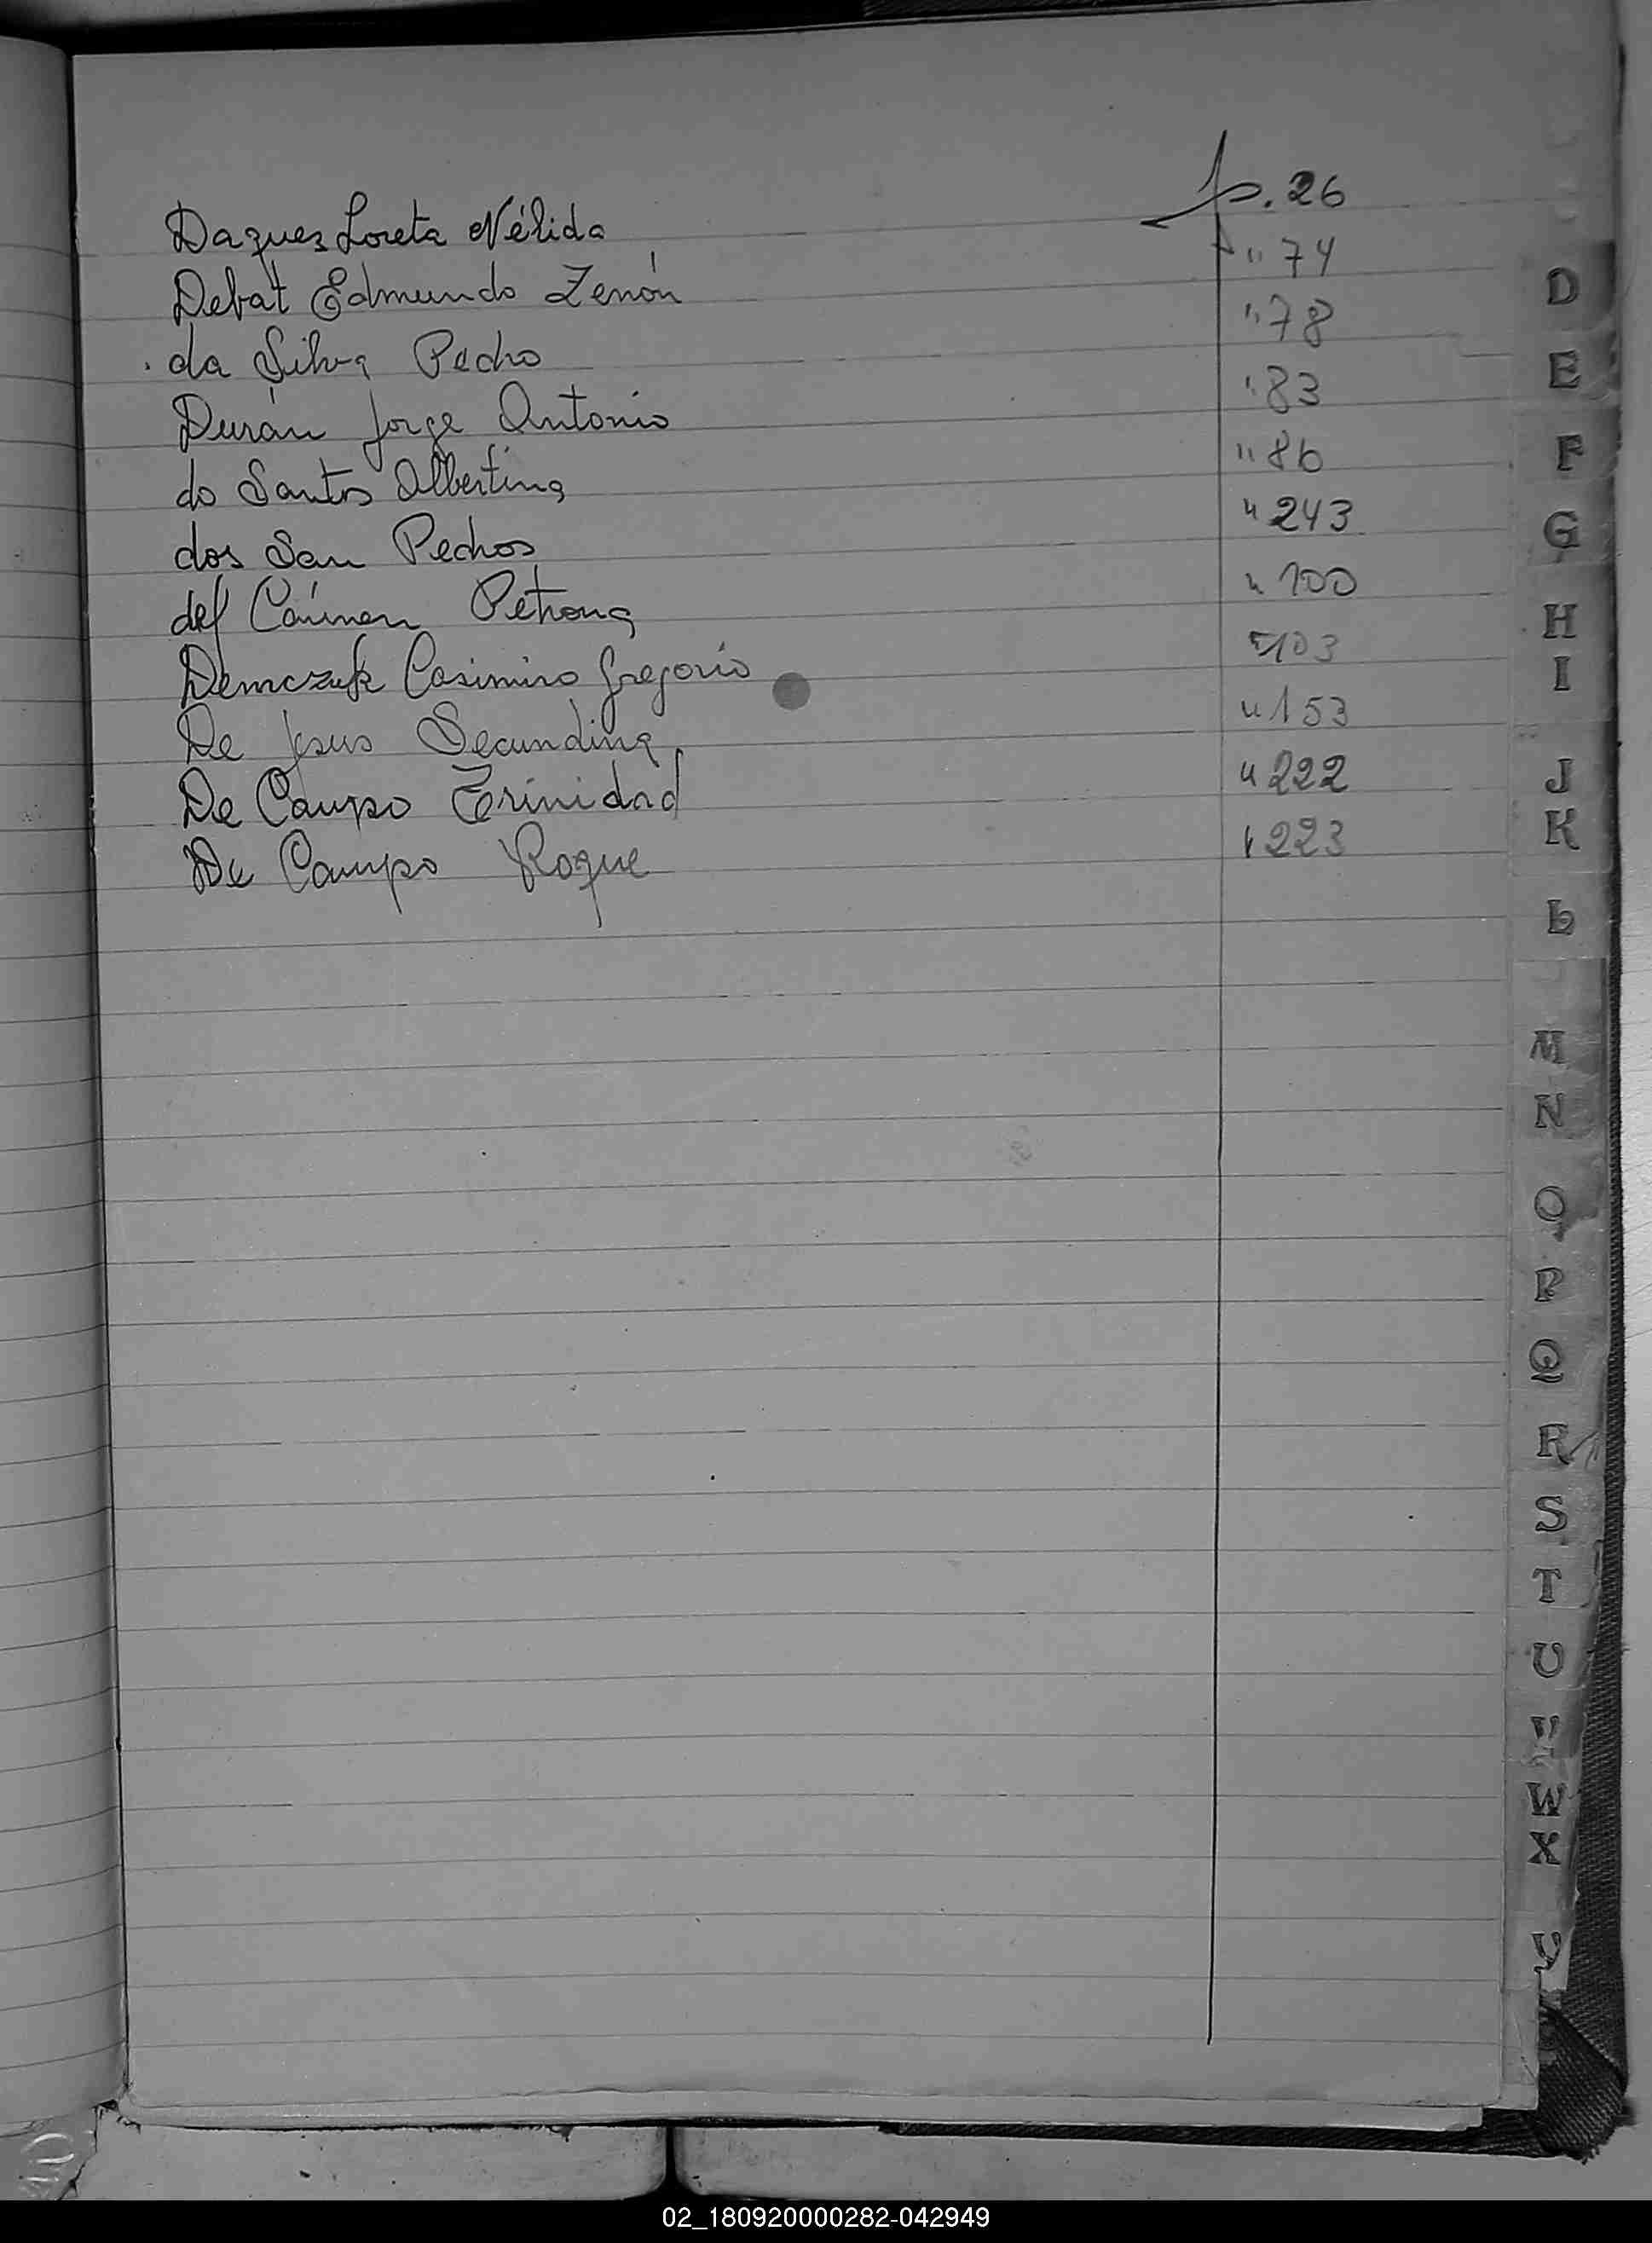 Dazquez Loreta Nélida p. 26
Debat Edmundo Zenón " 74
da Silva Pedro " 78
Durán Jorge Antonio " 83
do Santos Albertina " 86
dos San Pedros " 243
del Cármen Petrona " 100
Demczuk Casimiro Gregorio " 103
De Jesus Secundina " 153
De Campo Trinidad " 222
De Campo Roque " 223
D
E
F
G
H
I
J
K
L
M
N
O
P
Q
R
S
T
U
V
W
X
Y
02_180920000282-042949